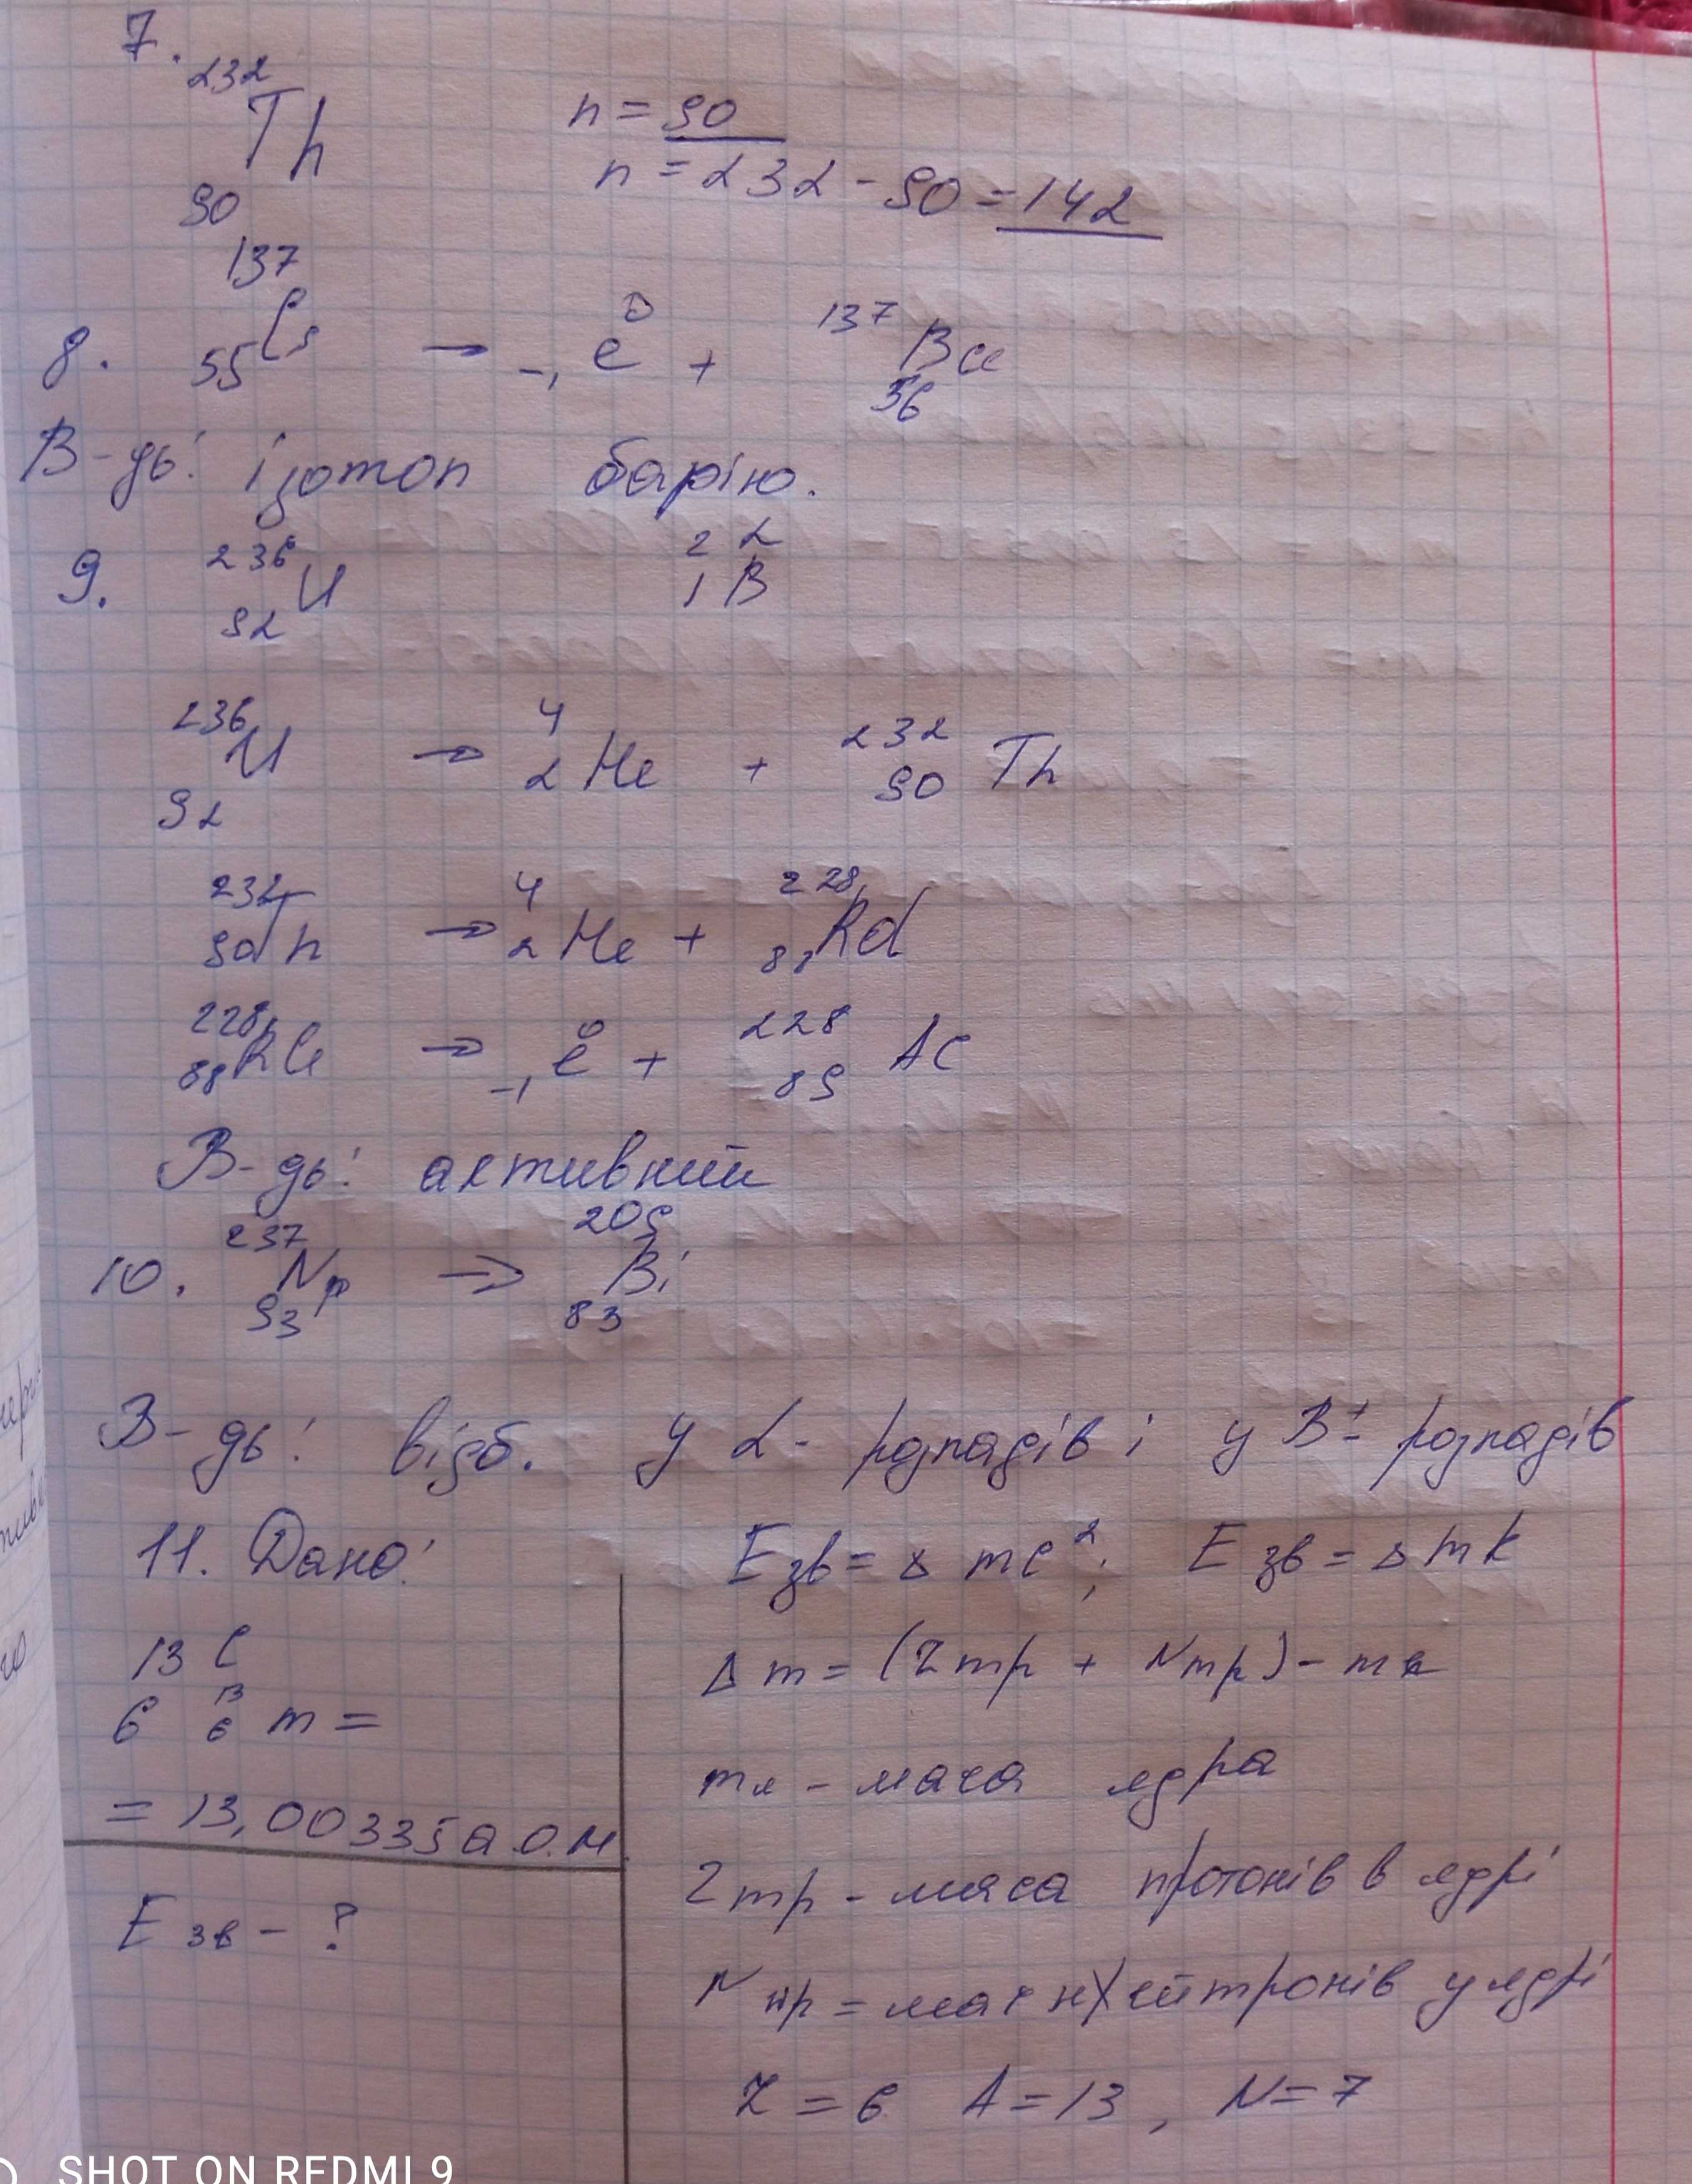 7.
232
Th
90
n = 90
n = 232 - 90 = 142
8. 137 55 Cs → -1 e 0 + 137 56 Ba
В-дь: ізотоп барію.
9. 236 92 U 2 α
1 β
236 92 U → 4 2 He + 232 90 Th
232 90 Th → 4 2 He + 228 88 Rd
228 88 Ra → -1 e 0 + 228 89 Ac
В-дь: активний
10. 237 93 Np → 209 83 Bi
В-дь: відб. у α- розпадів і у β- розпадів
11. Дано:
13 C
6 13 6 m =
= 13,00335 а.о.м.
E зв - ?
E зв = Δ mc²; E зв = Δ m k
Δ m = (Z mp + N mp) - m я
m я - маса ядра
Z mp - маса протонів в ядрі
N mp = мас нейтронів у ядрі
Z = 6 A = 13, N = 7
SHOT ON REDMI 9